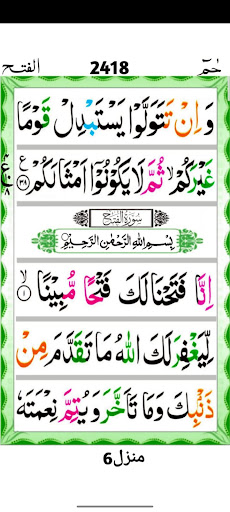 الفتح 2418 حٰمٓ
وَاِنْ تَتَوَلَّوْا يَسْتَبْدِلْ قَوْمًا
غَيْرَكُمْ ۙ ثُمَّ لَا يَكُوْنُوْۤا اَمْثَالَكُمْ ۝۳۸ ع
سُوْرَةُ الْفَتْحِ
بِسْمِ اللّٰهِ الرَّحْمٰنِ الرَّحِيْمِ
اِنَّا فَتَحْنَا لَكَ فَتْحًا مُّبِيْنًا ۙ۝۱
لِّيَغْفِرَ لَكَ اللّٰهُ مَا تَقَدَّمَ مِنْ
ذَنْۢبِكَ وَمَا تَاَخَّرَ وَيُتِمَّ نِعْمَتَهٗ
منزل6